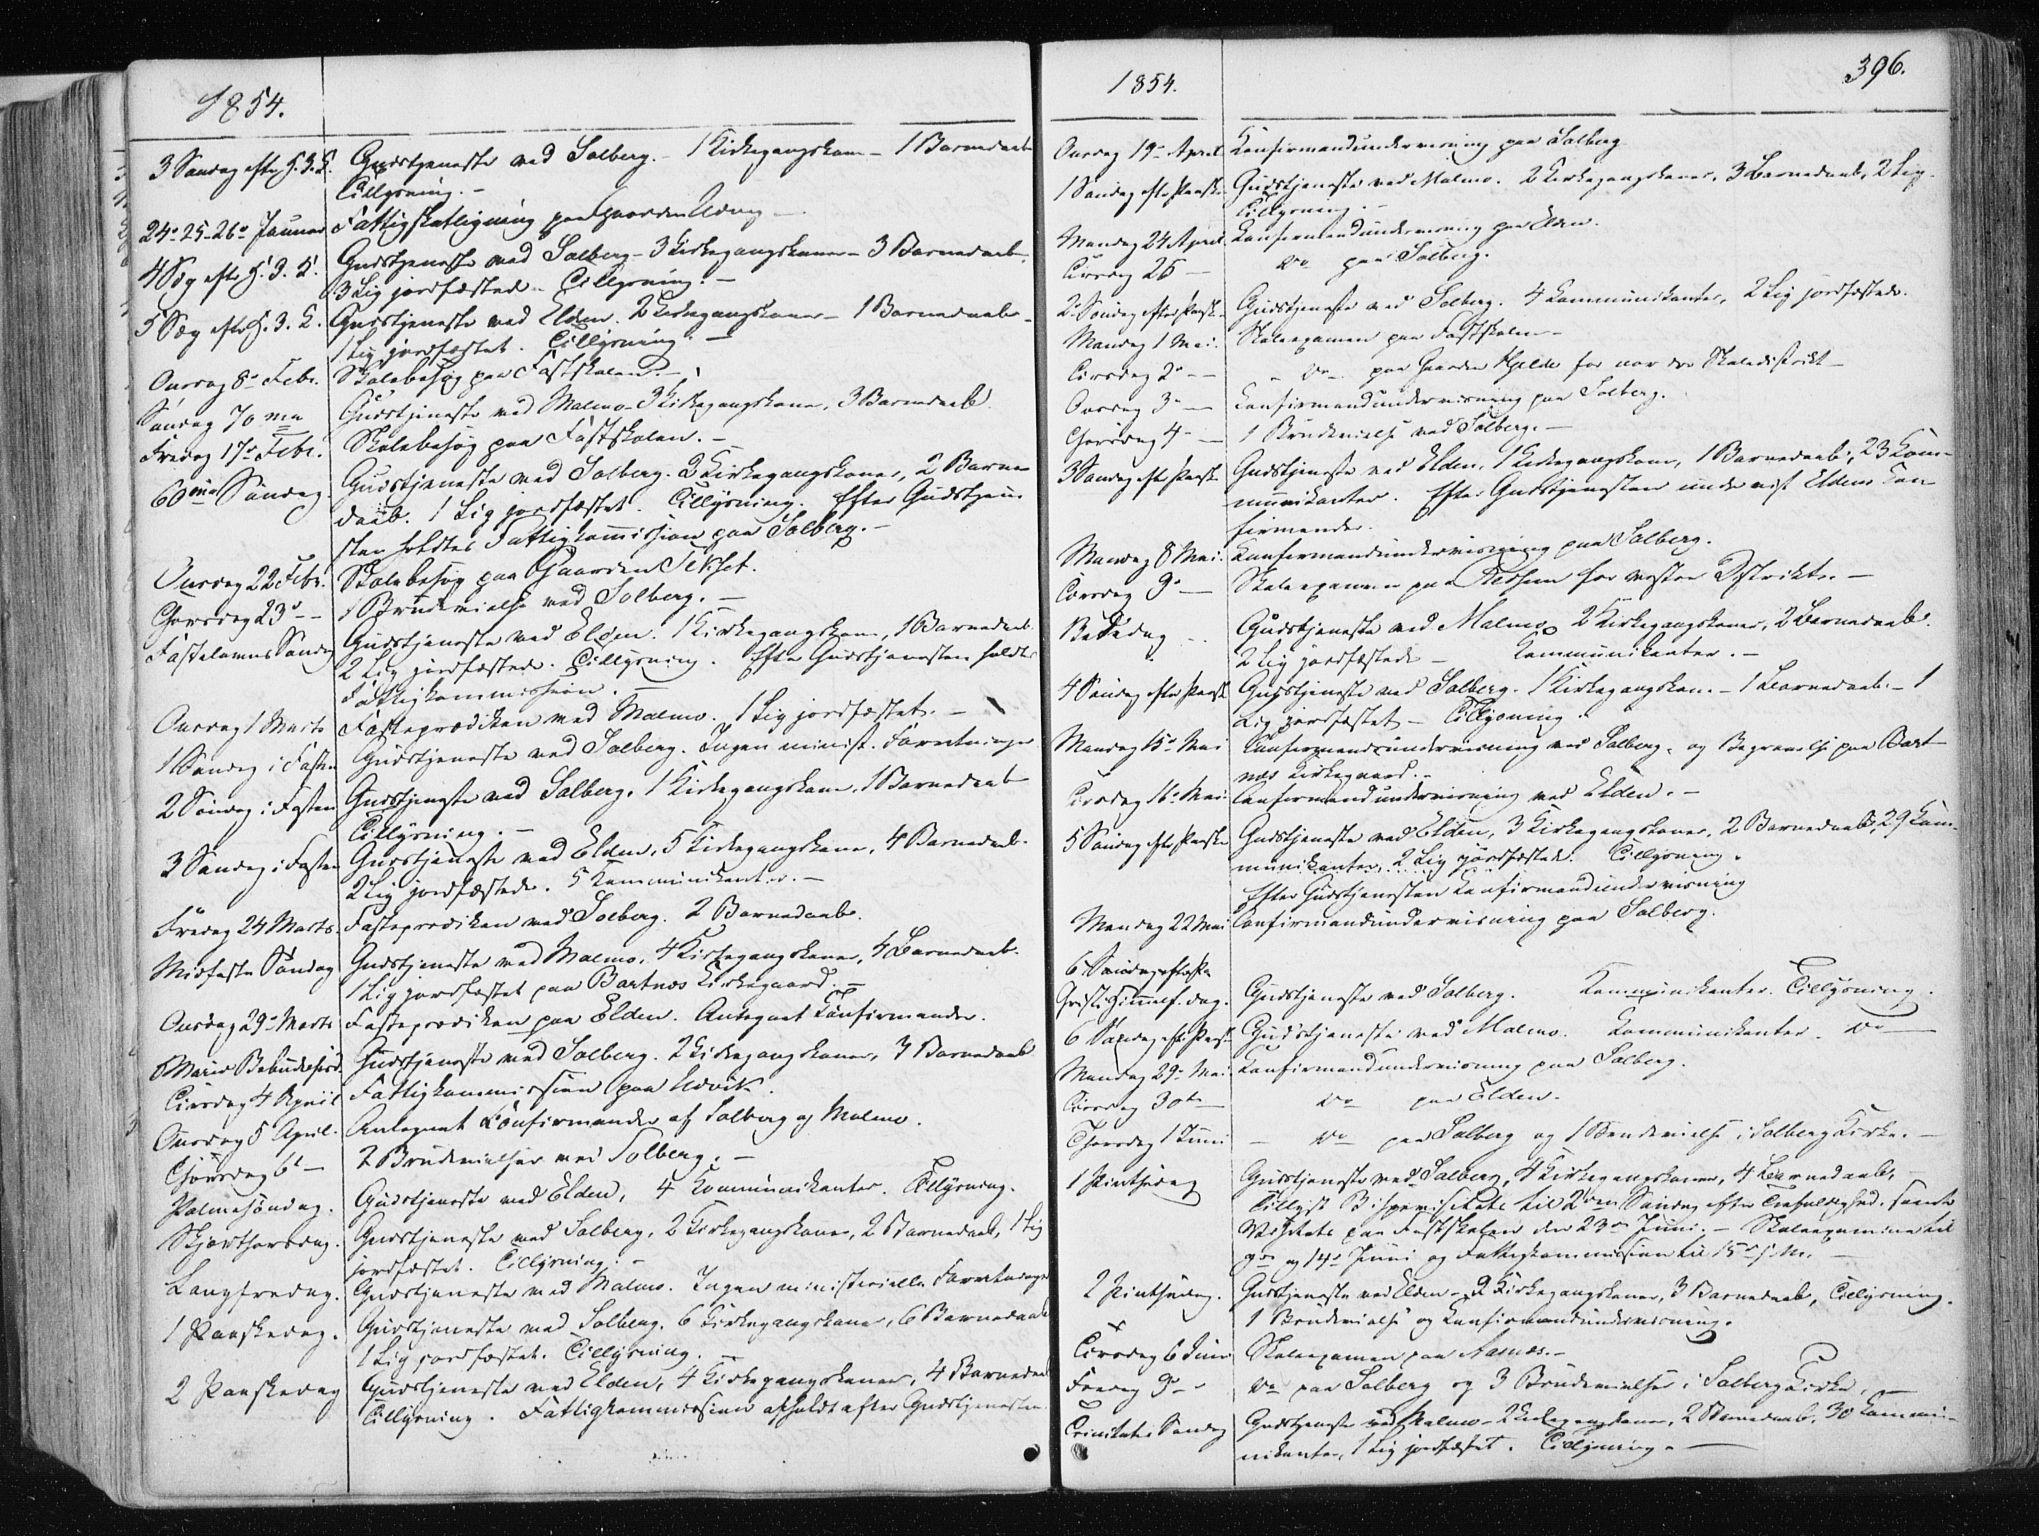 1854.
3 Søndag efter H. 3. K. Gudstjeneste ved Solberg. - 1 Kirkegangskone - 1 Barnedaab
Tillysning. -
24de 25-26de Januar Fattigskatligning paa Gaarden
4 Søg efter H. 3. K. Gudstjeneste ved Solberg - 3 Kirkegangskoner - 3 Barnedaab.
3 Lig jordfæstede - Tillysning. -
5 Søg efter H. 3. K. Gudstjeneste ved Elden. 2 Kirkegangskoner - 1 Barnedaab -
1 Lig jordfæstet. Tillysning. -
Onsdag 8de Febr. Skolebesøg paa Fastskolen. -
Søndag 70ma Gudstjeneste ved Malmo - 3 Kirkegangskoner, 3 Barnedaab.
Fredag 17de Febr. Skolebesøg paa Fastskolen. -
60ma Søndag Gudstjeneste ved Solberg. 2 Kirkegangskoner, 2 Barne
daab. 1 Lig jordfæstet. Tillysning. Efter Gudstjene
sten holdtes Fattigkommission paa Solberg. -
Onsdag 22 Febr. Skolebesøg paa Gaarden Sekset.
Thorsdag 23de - 1 Brudevielse ved Solberg. -
Fastelavns Søndag Gudstjeneste ved Elden. 1 Kirkegangskone, 1 Barnedaab
2 Lig jordfæstede. Tillysning. Efter Gudstjenesten holdtes
Fattigkommission. -
Onsdag 1 Marts Fasteprædiken ved Malmo. 1 Lig jordfæstet. -
1 Søndag i Fasten Gudstjeneste ved Solberg. Ingen minist. Forretninger
2 Søndag i Fasten Gudstjeneste ved Solberg. 1 Kirkegangskone, 1 Barnedaab
Tillysning. -
3 Søndag i Fasten Gudstjeneste ved Elden, 5 Kirkegangskoner, 4 Barnedaab.
2 Lig jordfæstede. 5 Kommunikanter. -
Fredag 24 Marts. Fasteprædiken ved Solberg. 2 Barnedaab.
Midfaste Søndag Gudstjeneste ved Malmo, 4 Kirkegangskoner, 4 Barnedaab.
1 Lig jordfæstet paa Bartnæs Kirkegaard. -
Onsdag 29de Marts Fasteprædiken paa Elden. Antegnet Konfirmander.
Mariæ Bebudelsesd. Gudstjeneste ved Solberg. 2 Kirkegangskoner, 3 Barnedaab
Tirsdag 4 April Fattigkommission paa Udvik.
Onsdag 5 April. Antegnet Konfirmander af Solberg og Malmo.
Thorsdag 6te - 2 Brudevielser ved Solberg. -
Palmesøndag. Gudstjeneste ved Elden, 4 Kommunikanter. Tillysning.
Skjærthorsdag. Gudstjeneste ved Solberg, 2 Kirkegangskoner, 2 Barnedaab, 1 Lig
jordfæstet. Tillysning. -
Langfredag. Gudstjeneste ved Malmo. Ingen ministerielle Forretninger
1 Paaskedag. Gudstjeneste ved Solberg. 6 Kirkegangskoner, 6 Barnedaab
1 Lig jordfæstet. Tillysning. -
2 Paaskedag Gudstjeneste ved Elden, 4 Kirkegangskoner, 4 Barnedaab
Tillysning. Fattigkommission afholdt efter Gudstjenesten.
1854.
396.
Onsdag 19de April Konfirmandundervisning paa Solberg
1 Søndag efter Paaske Gudstjeneste ved Malmo. 2 Kirkegangskoner, 3 Barnedaab, 2 Lig.
Tillysning. -
Mandag 24 April. Konfirmandundervisning paa Elden.
Tirsdag 25 - do paa Solberg.
2 Søndag efter Paaske Gudstjeneste ved Solberg. 4 Kommunikanter, 2 Lig jordfæstede.
Mandag 1 Mai. Skoleexamen paa Fastskolen -
Tirsdag 2den - - do - paa Gaarden Hjelde for Skoledistrikt -
Onsdag 3die - Konfirmandundervisning paa Solberg.
Thorsdag 4de - 1 Brudevielse ved Solberg. -
3 Søndag eft Paaske Gudstjeneste ved Elden, 1 Kirkegangskone, 1 Barnedaab, 23 Kom-
munikanter. Efter Gudstjenesten undervist Eldens Kon-
firmander.
Mandag 8 Mai. Konfirmandundervisning paa Solberg.
Tirsdag 9de - Skoleexamen paa for vestre Distrikt. -
Bededag - Gudstjeneste ved Malmo 2 Kirkegangskoner, 2 Barnedaab.
2 Lig jordfæstede - Kommunikanter. -
4 Søndag efter Paaske Gudstjeneste ved Solberg. 1 Kirkegangskone - 1 Barnedaab. - 1
Lig jordfæstet - Tillysning.
Mandag 15de Mai Konfirmandundervisning ved Solberg, og Begravelse paa Bart-
næs Kirkegaard. -
Tirsdag 16de Mai Konfirmandundervisning ved Elden. -
5 Søndag efter Paaske Gudstjeneste ved Elden, 3 Kirkegangskoner, 2 Barnedaab, 29 Kom-
munikanter, 2 Lig jordfæstede. Tillysning.
Efter Gudstjenesten Konfirmandundervisning
Mandag 22 Mai Konfirmandundervisning paa Solberg.
6 Søndag efter Pa
Christi Himmelf. dag. Gudstjeneste ved Solberg. Kommunikanter. Tillysning.
6 Søndag eft Paaske Gudstjeneste ved Malmo. Kommunikanter. do -
Mandag 29de Mai Konfirmandundervisning paa Solberg.
Tirsdag 30te - do paa Elden.
Thorsdag 1 Juni - do paa Solberg og 1 Brudevielse i Solberg Kirke. -
1 Pintsedag Gudstjeneste ved Solberg, 4 Kirkegangskoner, 4 Barnedaab, -
Tillyst Bispevisitats til 2den Søndag efter Trefoldighed. samt
Visitats paa Fastskolen den 23de Juni. - Skoleexamina til
9de og 14de Juni og Fattigkommission til 15de s. M. -
2 Pintsedag. Gudstjeneste ved Elden - 2 Kirkegangskoner, 3 Barnedaab, Tillysning.
1 Brudevielse og Konfirmandundervisning.
Tirsdag 6 Juni Skoleexamen paa Aasnæs. -
Fredag 9de - do paa Solberg og 3 Brudevielser i Solberg Kirke.
Trinitatis Søndag Gudstjeneste ved Malmo - 2 Kirkegangskoner, 2 Barnedaab, 30 Kommu-
nikanter, 1 Lig jordfæstet. Tillysning. -